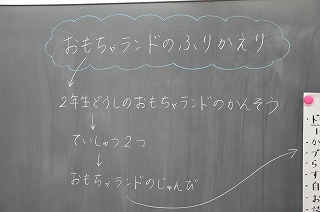 おもちゃランドのふりかえり
2年生どうしのおもちゃランドのかんそう
ていしゅつ2つ
おもちゃランドのじゅんび